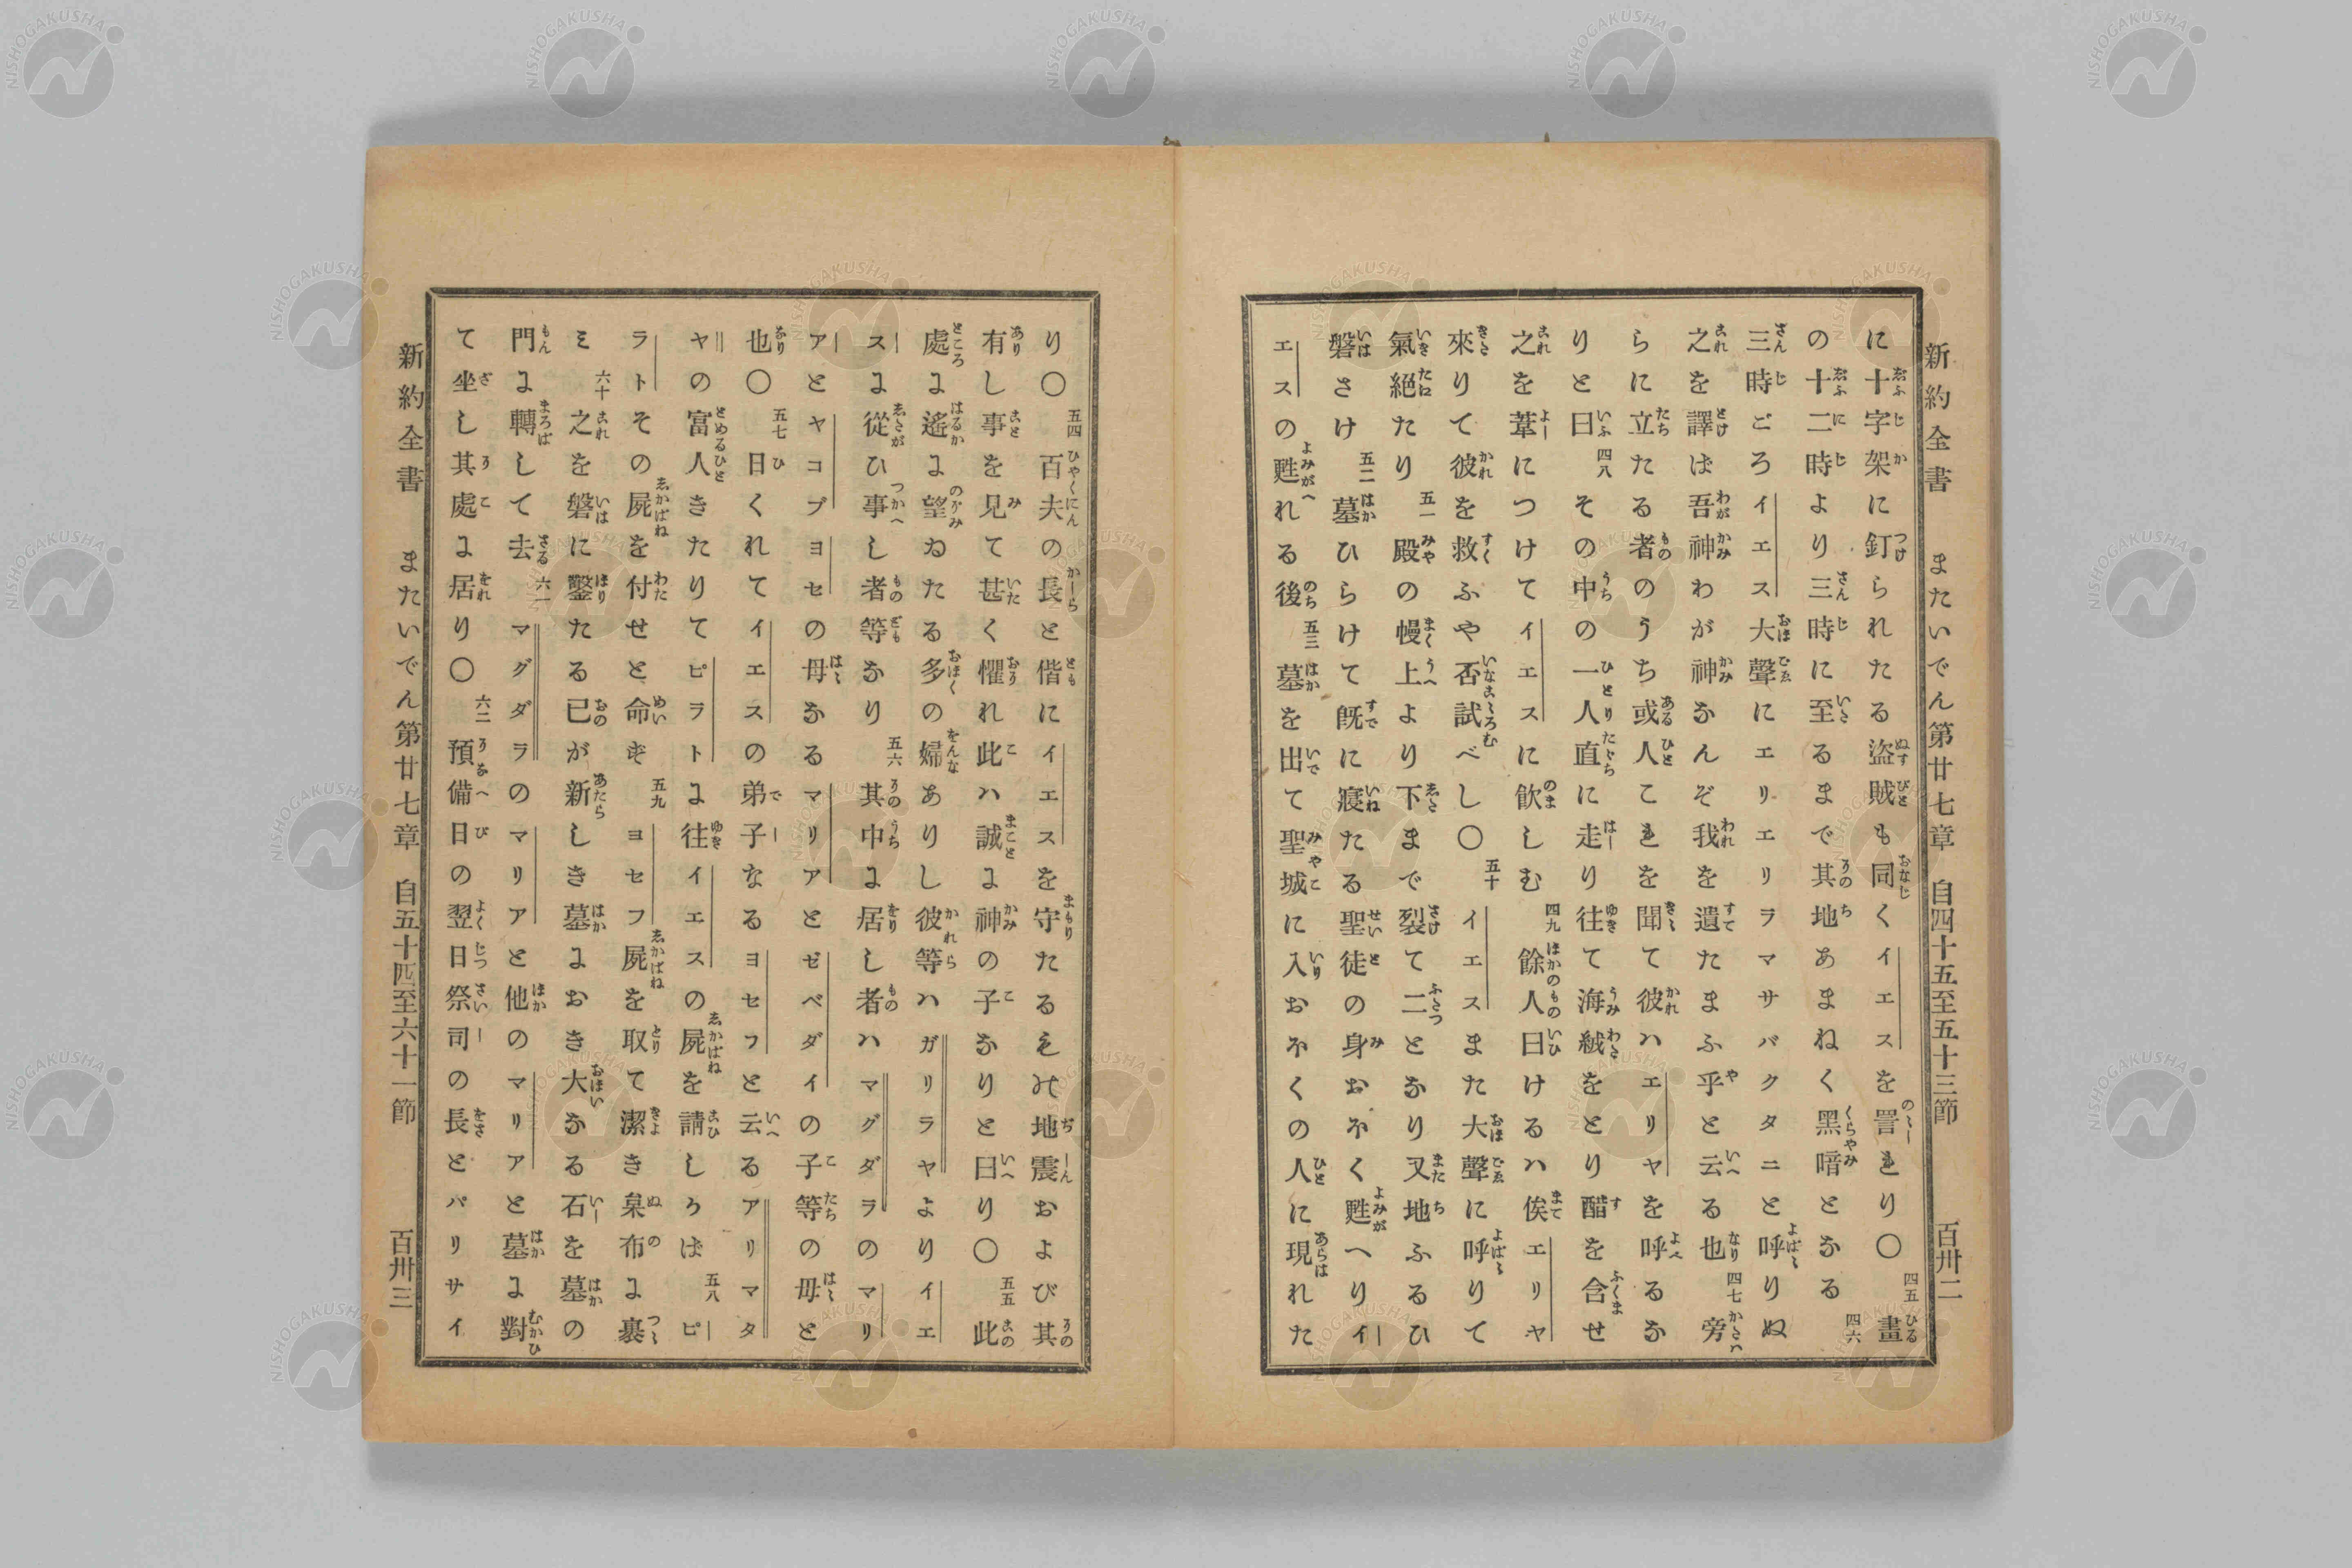 新約全書 またいでん第廿七章 自四十五至五十三節 百卅二
に十字架に釘られたる盜賊も同くイエスを詈れり〇四五晝
の十二時より三時に至るまで其地あまねく黑暗となる四六
三時ごろイエス大聲にエリエリラマサバクタニと呼りぬ
之を譯ば吾神わが神なんぞ我を遺たまふ乎と云る也四七旁
らに立たる者のうち或人これを聞て彼ハエリヤを呼るな
りと曰四八その中の一人直に走り往て海絨をとり醋を含せ
之を葦につけてイエスに飮しむ四九餘人曰けるハ俟エリヤ
來りて彼を救ふや否試べし〇五十イエスまた大聲に呼りて
氣絕たり五一殿の幔上より下まで裂て二となり又地ふるひ
磐さけ五二墓ひらけて旣に寢たる聖徒の身おほく甦へりイ
エスの甦れる後五三墓を出て聖城に入おほくの人に現れた
り〇五四百夫の長と偕にイエスを守たるもの地震および其
有し事を見て甚く懼れ此ハ誠に神の子なりと曰り〇五五此
處に遙に望ゐたる多の婦ありし彼等ハガリラヤよりイエ
スに從ひ事し者等なり五六其中に居し者ハマグダラのマリ
アとヤコブヨセの母なるマリアとゼベダイの子等の母と
也〇五七日くれてイエスの弟子なるヨセフと云るアリマタ
ヤの富人きたりてピラトに往イエスの屍を請しかば五八ピ
ラトその屍を付せと命ず五九ヨセフ屍を取て潔き枲布に裹
ミ六十之を磐に鑿たる已が新しき墓におき大なる石を墓の
門に轉して去六一マグダラのマリアと他のマリアと墓に對
て坐し其處に居り〇六二預備日の翌日祭司の長とパリサイ
新約全書 またいでん第廿七章 自五十四至六十一節 百卅三
NISHOGAKUSHA